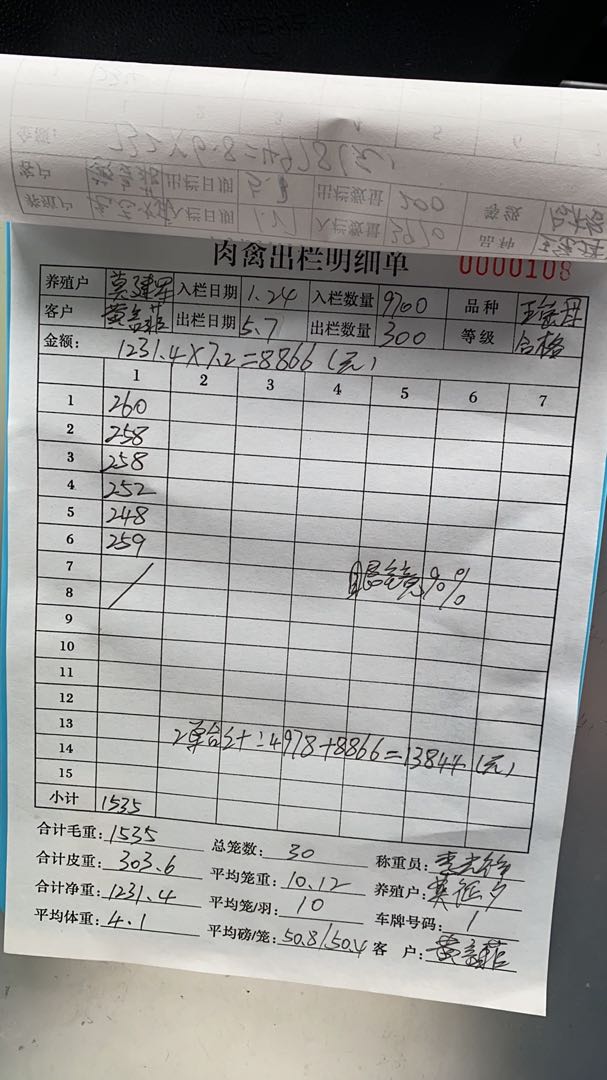 732×6.8=4978(元)
出栏日期 出栏数量 200 等级
入栏日期 入栏数量 品种
肉禽出栏明细单 0000108
养殖户 莫建军 入栏日期 1.24 入栏数量 9700 品种
客户 出栏日期 5.7 出栏数量 300 等级 合格
金额: 1231.4×7.2=8866(元)
1 2 3 4 5 6 7
1 260
2 258
3 258
4 252
5 248
6 259
7
8
9
10
11
12
13
2单合计:4978+8866=13844(元)
14
15
小计 1535
合计毛重: 1535 总笼数: 30 称重员:
合计皮重: 303.6 平均笼重: 10.12 养殖户:
合计净重: 1231.4 平均笼/羽: 10 车牌号码: 1
平均体重: 4.1 平均磅/笼: 50.8/50.4 客 户: